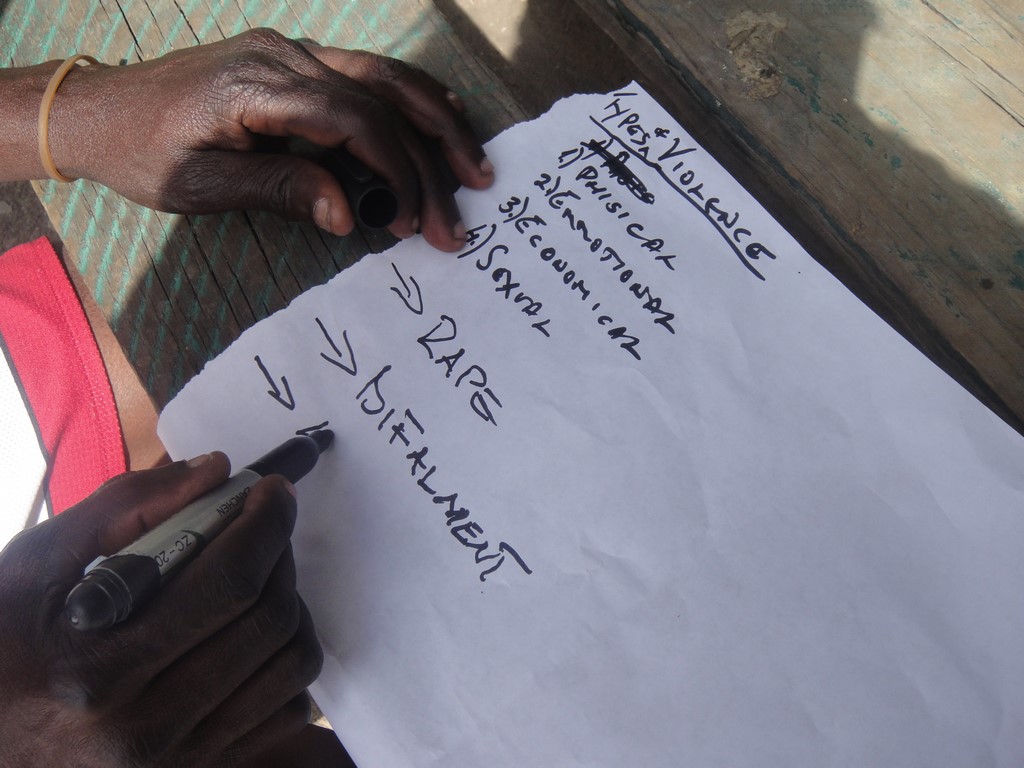 TYPES of VIOLENCE
1) PHISICAL
2.) EMMOTIONAL
3.) ECONOMICAL
4.) SEXUAL
RAPE
DIFALMENT
ZC-20